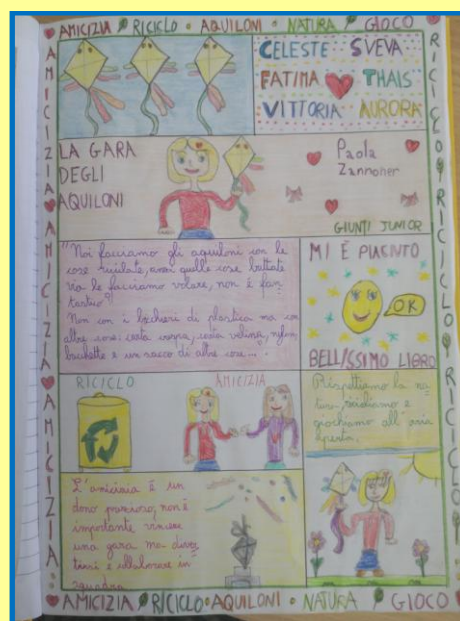 AMICIZIA RICICLO • AQUILONI • NATURA GIOCO
CELESTE SVEVA
FATIMA THAIS
VITTORIA AURORA
LA GARA
DEGLI
AQUILONI
Paola
Zannoner
GIUNTI JUNIOR
"Noi facciamo gli aquiloni con le
cose riciclate, anzi quelle cose buttate
via le facciamo volare, non è fan-
tastico?"
Non con i bicchieri di plastica ma con
altre cose: carta crespa, carta velina, nylon,
bacchette e un sacco di altre cose..."
MI È PIACIUTO
OK
BELLISSIMO LIBRO
RICICLO
AMICIZIA
Rispettiamo la na-
tura, ricicliamo e
giochiamo all'aria
aperta.
L'amicizia è un
dono prezioso, non è
importante vincere
una gara ma diver-
tirsi e collaborare in
squadra
AMICIZIA RICICLO • AQUILONI • NATURA GIOCO
AMICIZIA AMICIZIA AMICIZIA
RICICLO RICICLO RICICLO